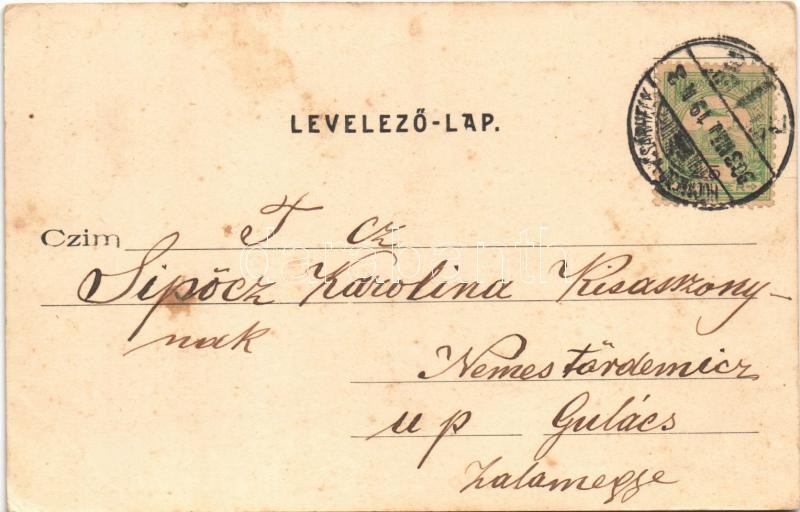 LEVELEZŐ-LAP.
Czim
T cz
Sipőcz Karolina Kisasszony-
nak
Nemestördemicz
u p Gulács
Zalamegye
darabanth